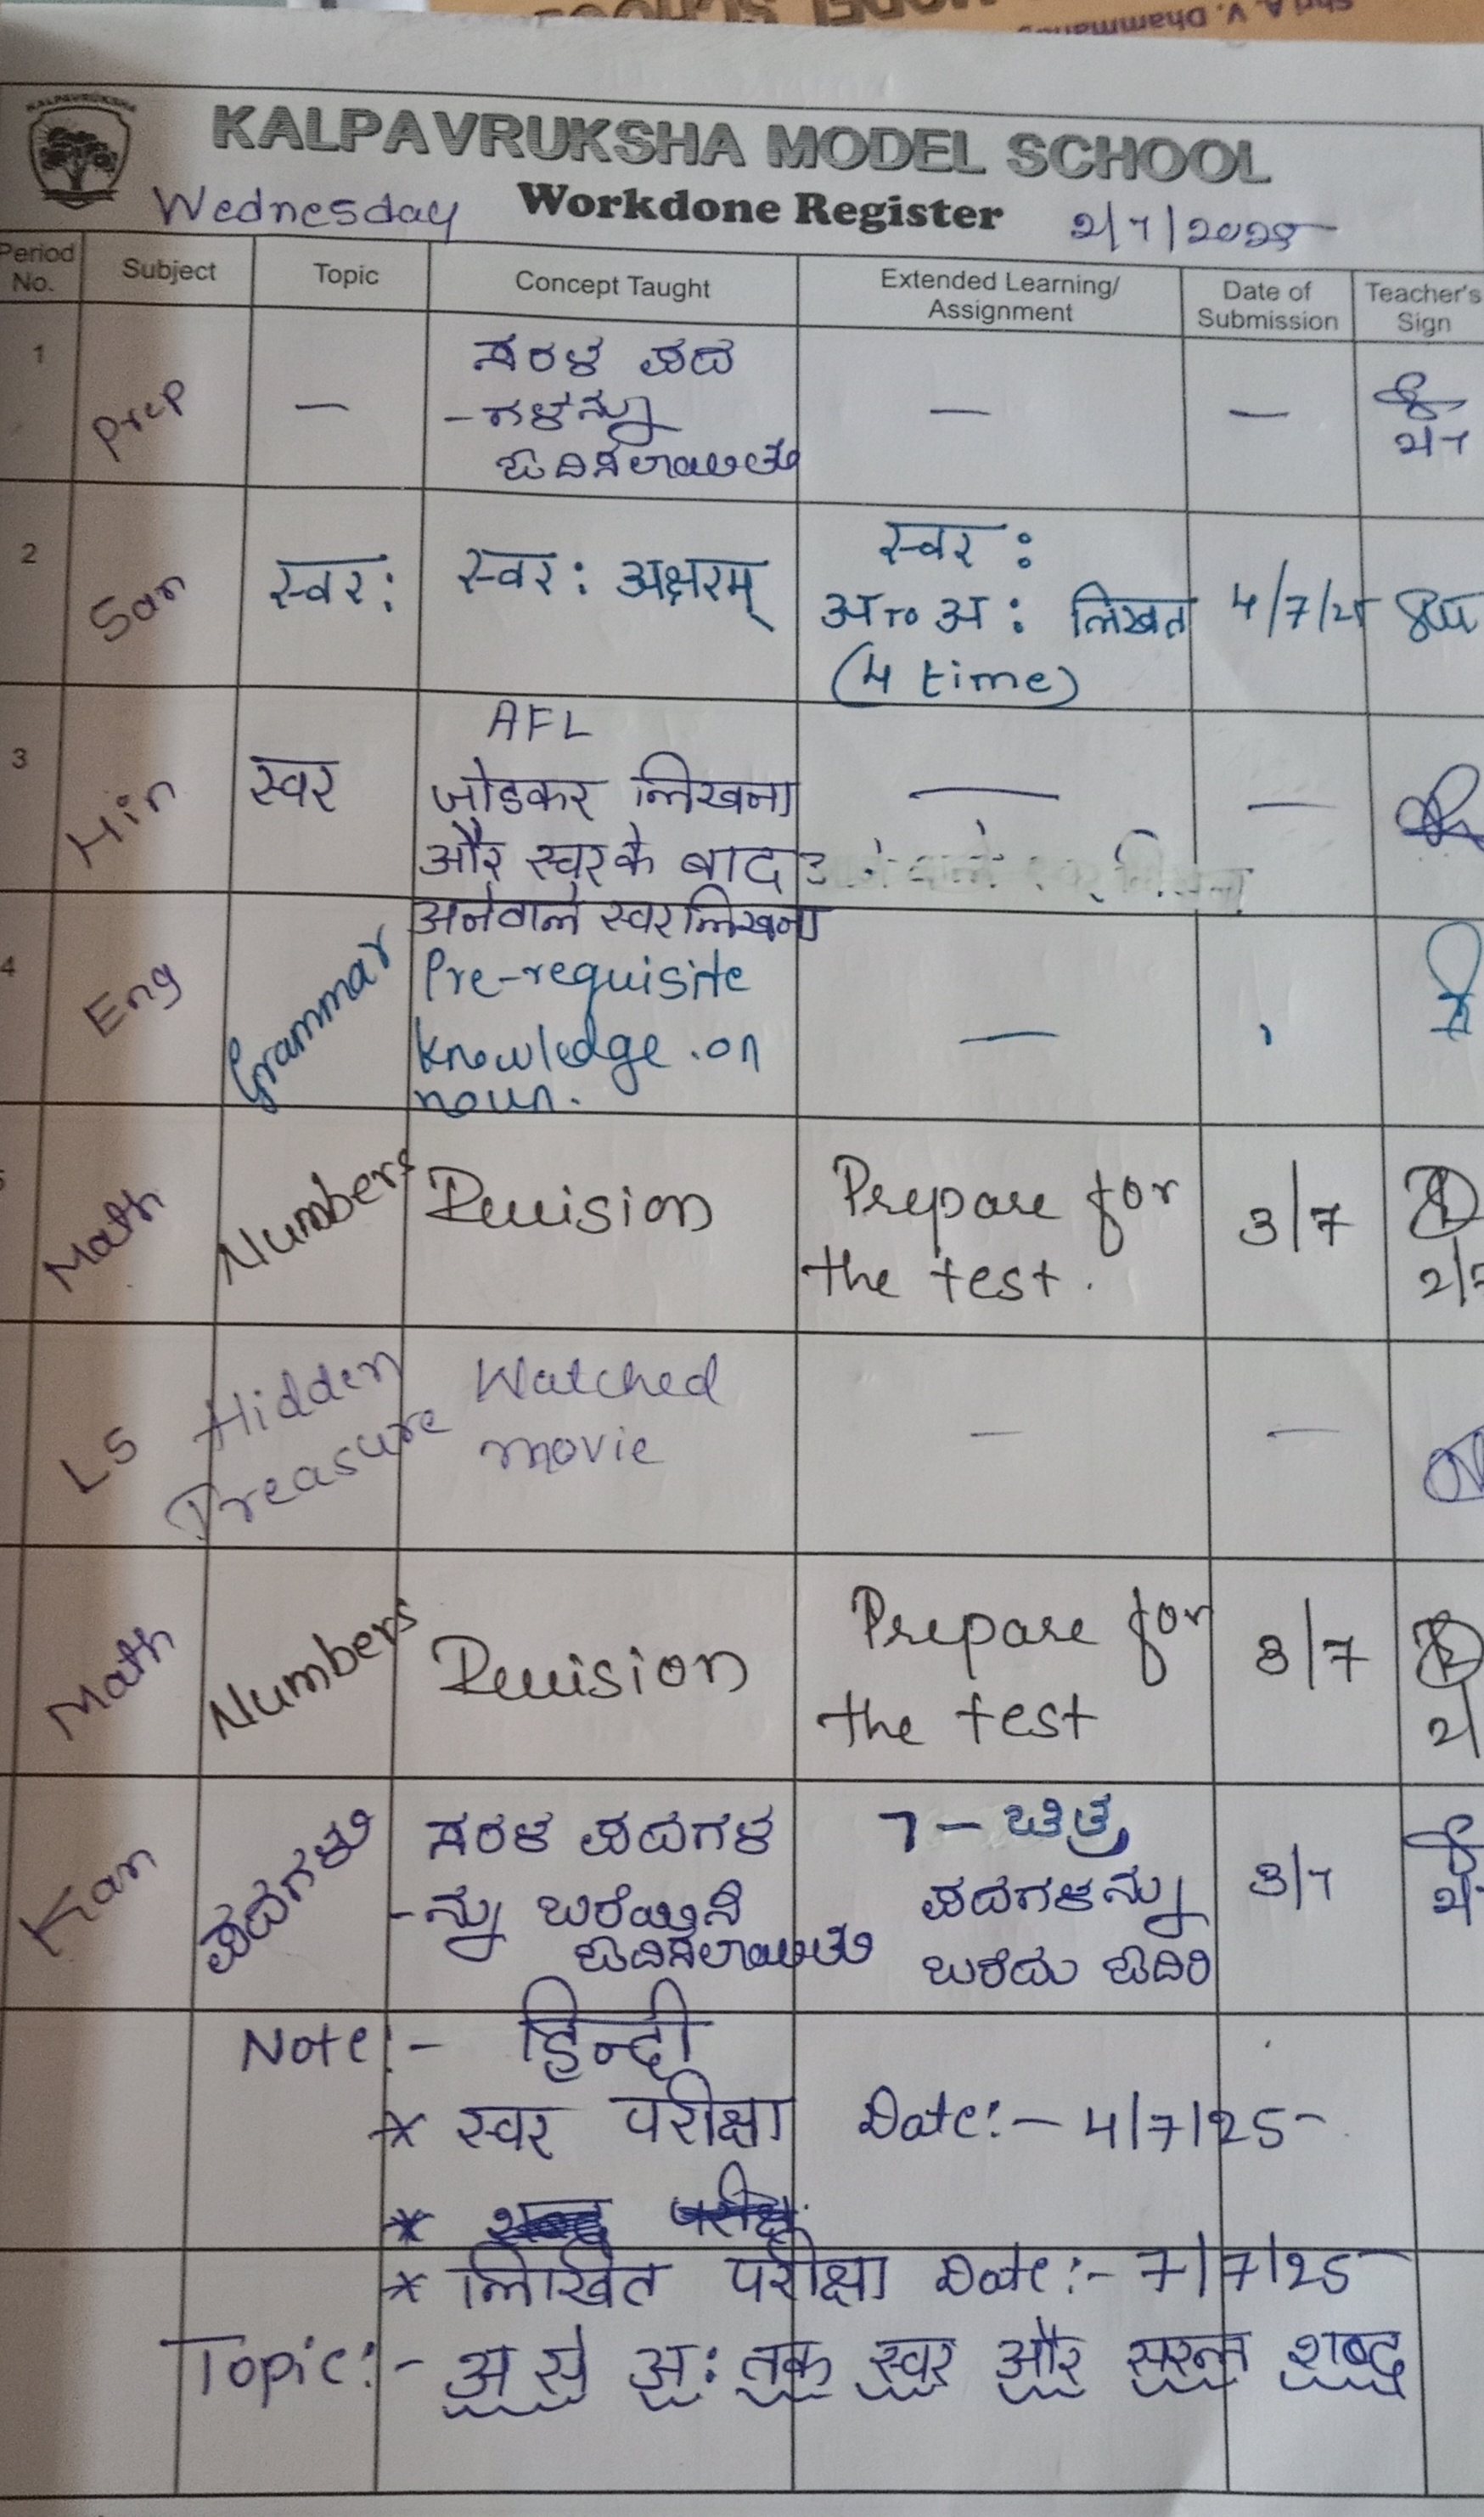 KALPAVRUKSHA
KALPAVRUKSHA MODEL SCHOOL
Wednesday Workdone Register 2/7/2025
Period No. Subject Topic Concept Taught Extended Learning/ Assignment Date of Submission Teacher's Sign
1 Prep — ಸರಳ ಪದ
-ಗಳನ್ನು — —
ಓದಿಸಲಾಯಿತು
2 San स्वर: स्वर: अक्षरम् स्वर:
अ TO अ: लिखत 4/7/25
(4 time)
AFL
3 Hin स्वर जोडकर लिखना — —
और स्वर के बाद
अनेवाले स्वर लिखना
4 Eng Grammar Pre-requisite
knowledge on —
noun.
Math Numbers Revision Prepare for 3/7
the test. 2/7
LS Hidden Watched
Treasure movie — —
Math Numbers Revision Prepare for 3/7
the test
Kan ಪದಗಳು ಸರಳ ಪದಗಳ 7 - ಚಿತ್ರ 3/7
-ನ್ನು ಬರೆಯಿಸಿ ಪದಗಳನ್ನು
ಓದಿಸಲಾಯಿತು ಬರೆದು ಓದಿರಿ
Note:- हिन्दी
* स्वर परीक्षा Date:- 4/7/25
*
* लिखित परीक्षा Date:- 7/7/25
Topic:- अ से अ: तक स्वर और सरल शब्द